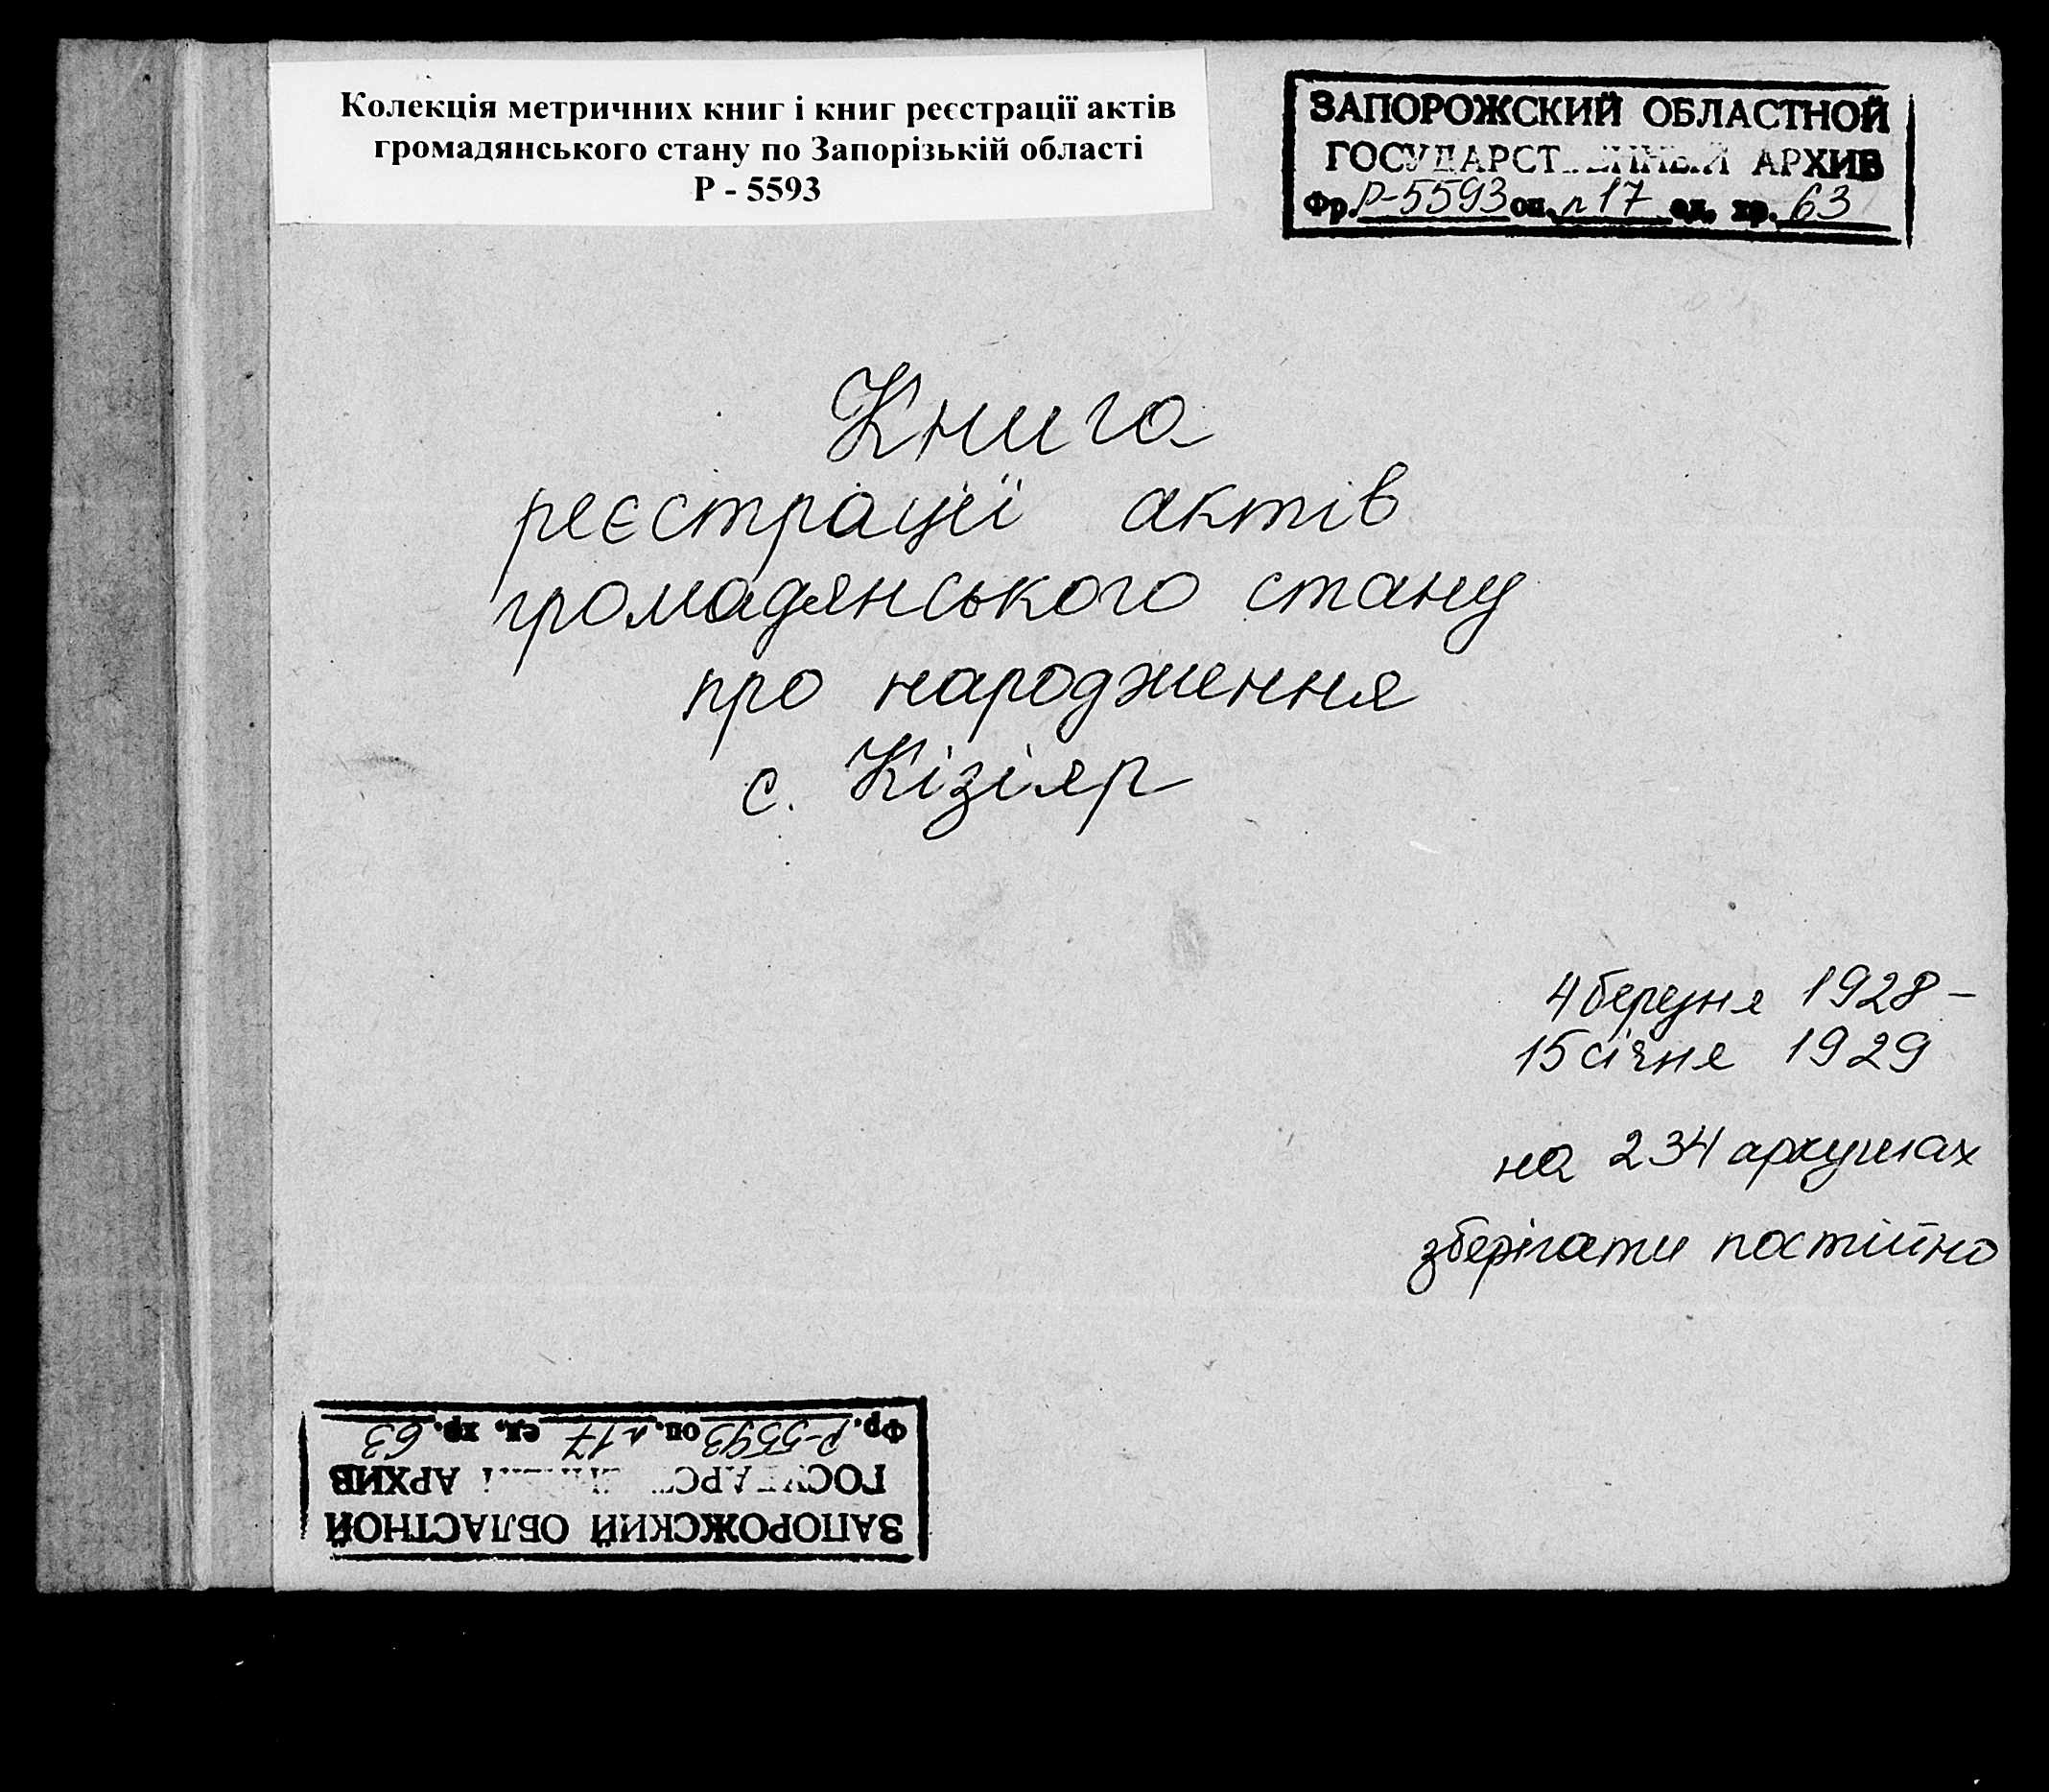 Колекція метричних книг і книг реєстрації актів
громадянського стану по Запорізькій області
Р - 5593
ЗАПОРОЖСКИЙ ОБЛАСТНОЙ
ГОСУДАРСТВЕННЫЙ АРХИВ
Фр. Р-5593 оп. л17 ед. хр. 63
Книга
реєстрації актів
громадянського стану
про народження
с. Кізіяр
4 березня 1928 –
15 січня 1929
на 234 аркушах
зберігати постійно
ЗАПОРОЖСКИЙ ОБЛАСТНОЙ
ГОСУДАРСТВЕННЫЙ АРХИВ
Фр. Р-5593 оп. л17 ед. хр. 63